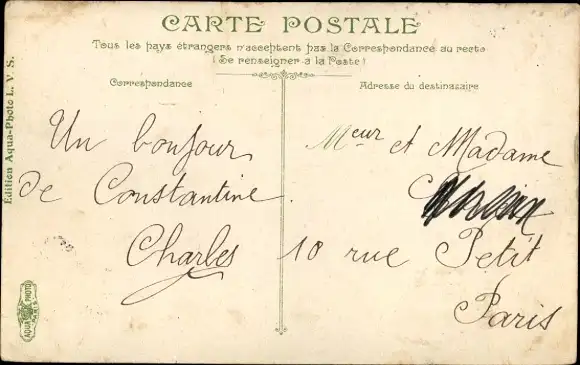 CARTE POSTALE
Tous les pays étrangers n'acceptent pas la Correspondance au recto
(Se renseigner à la Poste)
Correspondance
Adresse du destinataire
Un bonjour
de Constantine.
Charles
Meur et Madame
10 rue Petit
Paris
Edition Aqua-Photo L. V. S.
AQUA PHOTO
PARIS